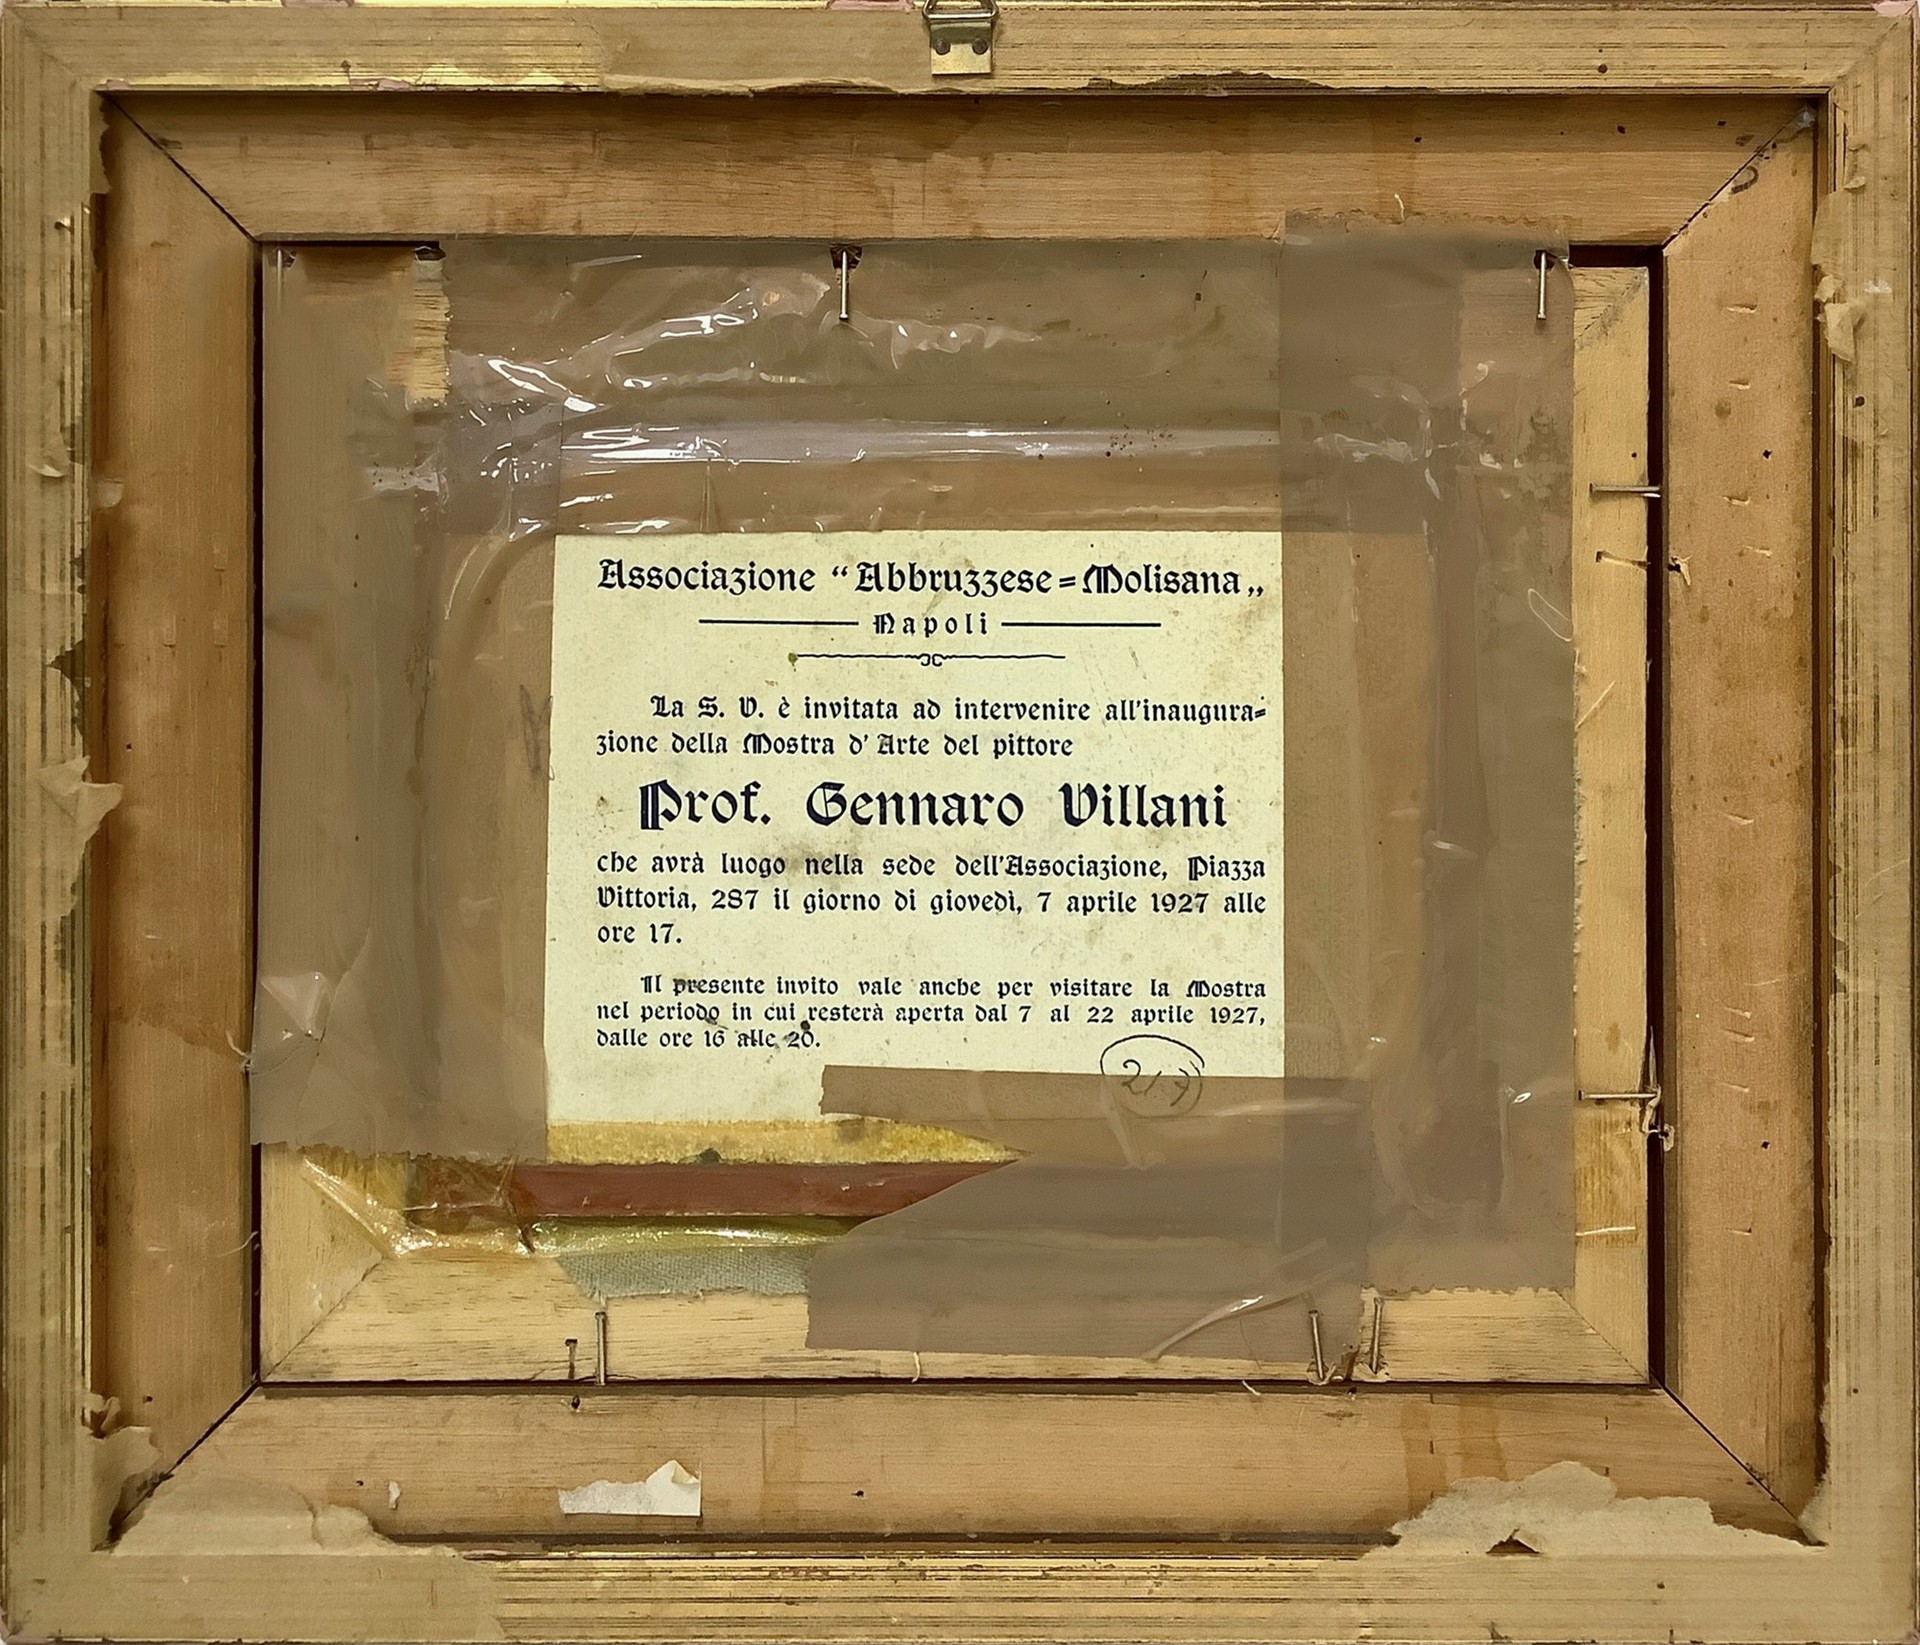 Associazione “Abbruzzese=Molisana„
Napoli
La S. V. è invitata ad intervenire all'inaugura=
zione della Mostra d' Arte del pittore
Prof. Gennaro Villani
che avrà luogo nella sede dell'Associazione, Piazza
Vittoria, 287 il giorno di giovedì, 7 aprile 1927 alle
ore 17.
Il presente invito vale anche per visitare la Mostra
nel periodo in cui resterà aperta dal 7 al 22 aprile 1927,
dalle ore 16 alle 20.